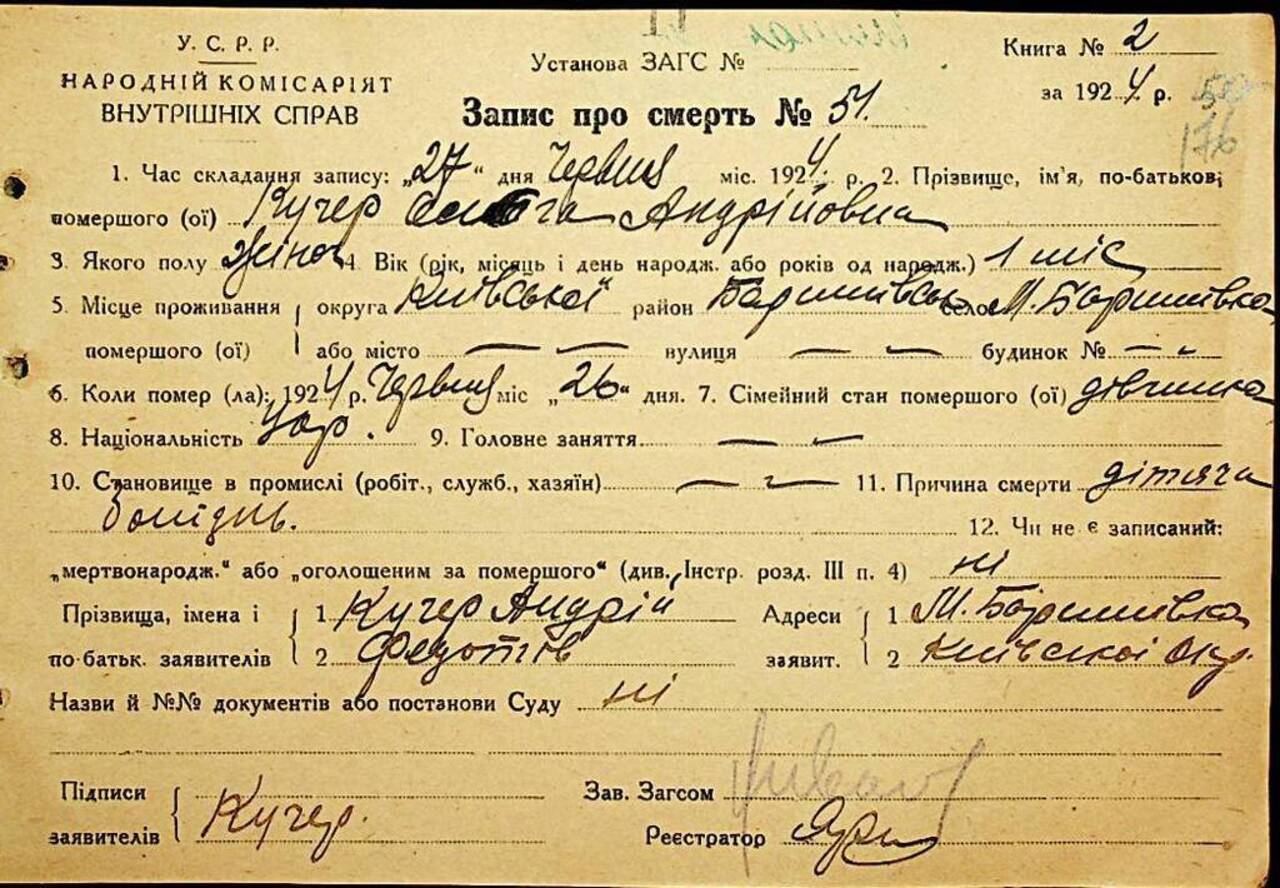 У. С. Р. Р.
НАРОДНІЙ КОМІСАРІЯТ
ВНУТРІШНІХ СПРАВ
Установа ЗАГС №
Книга № 2
за 1924 р.
Запис про смерть № 51.
176
1. Час складання запису: „27“ дня Червня міс. 1924. р. 2. Прізвище, ім'я, по-батькові
помершого (ої) Кучер Ольга Андрійовна
3. Якого полу жіноч 4. Вік (рік, місяць і день народж. або років од народж.) 1 міс
5. Місце проживання округа Київської район Баришівськ село М. Баришівка
помершого (ої) або місто — — вулиця — — будинок № — —
6. Коли помер (ла): 1924 р. Червня міс „26“ дня. 7. Сімейний стан помершого (ої) дівчинка
8. Національність Укр. 9. Головне заняття — —
10. Становище в промислі (робіт., служб., хазяїн) — — 11. Причина смерти дітяча
болізнь. 12. Чи не є записаний:
„мертвонародж.“ або „оголошеним за помершого“ (див. Інстр. розд. III п. 4) ні
Прізвища, імена і 1 Кучер Андрій Адреси 1 М. Баришівка
по-батьк. заявителів 2 Федотів заявит. 2 Київської Окр.
Назви й №№ документів або постанови Суду ні
Підписи
заявителів Кучер.
Зав. Загсом
Реєстратор